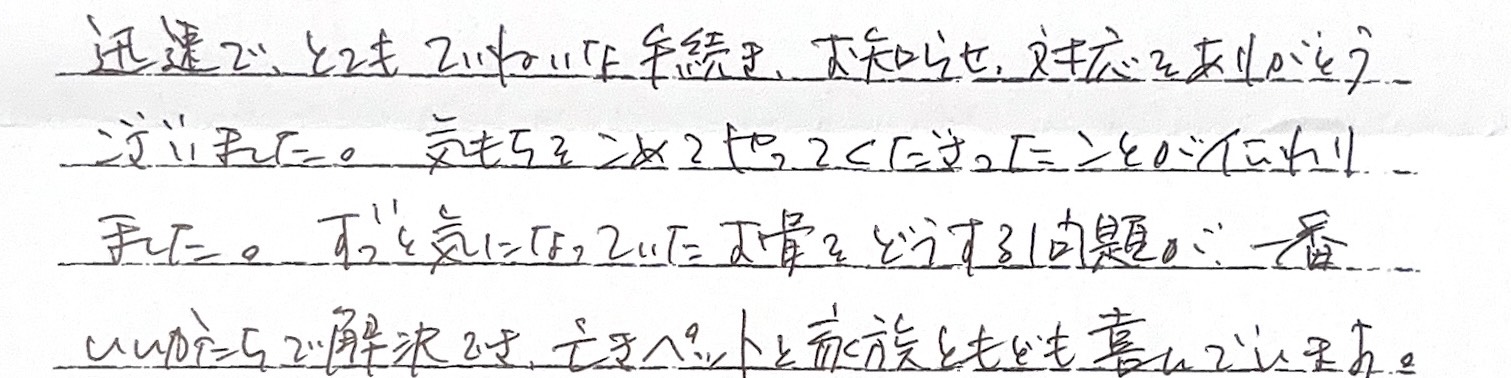 迅速で、とてもていねいな手続き、お知らせ、対応をありがとう
ございました。気もちをこめてやってくださったことが伝わり
ました。ずっと気になっていたお骨をどうする問題が、一番
いいかたちで解決でき、亡きペットと家族ともども喜んでいます。